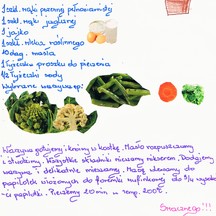 1 szkl. mąki pszennej pełnoziarnistej
1 szkl. mąki jaglanej
1 jajko
1 szkl. mleka roślinnego
10 dag. masła
1 łyżeczka proszku do pieczenia
1/2 łyżeczki sody
Wybrane warzywa np:
Warzywa gotujemy i kroimy w kostkę. Masło rozpuszczamy
i studzimy. Wszystkie składniki mieszamy mikserem. Dodajemy
warzywa i delikatnie mieszamy. Masę wlewamy do
papilotek włożonych do foremki mufinkowej do 3/4 wysokoś-
ci papilotki. Pieczemy 20 min w temp. 200°C.
Smacznego!!!